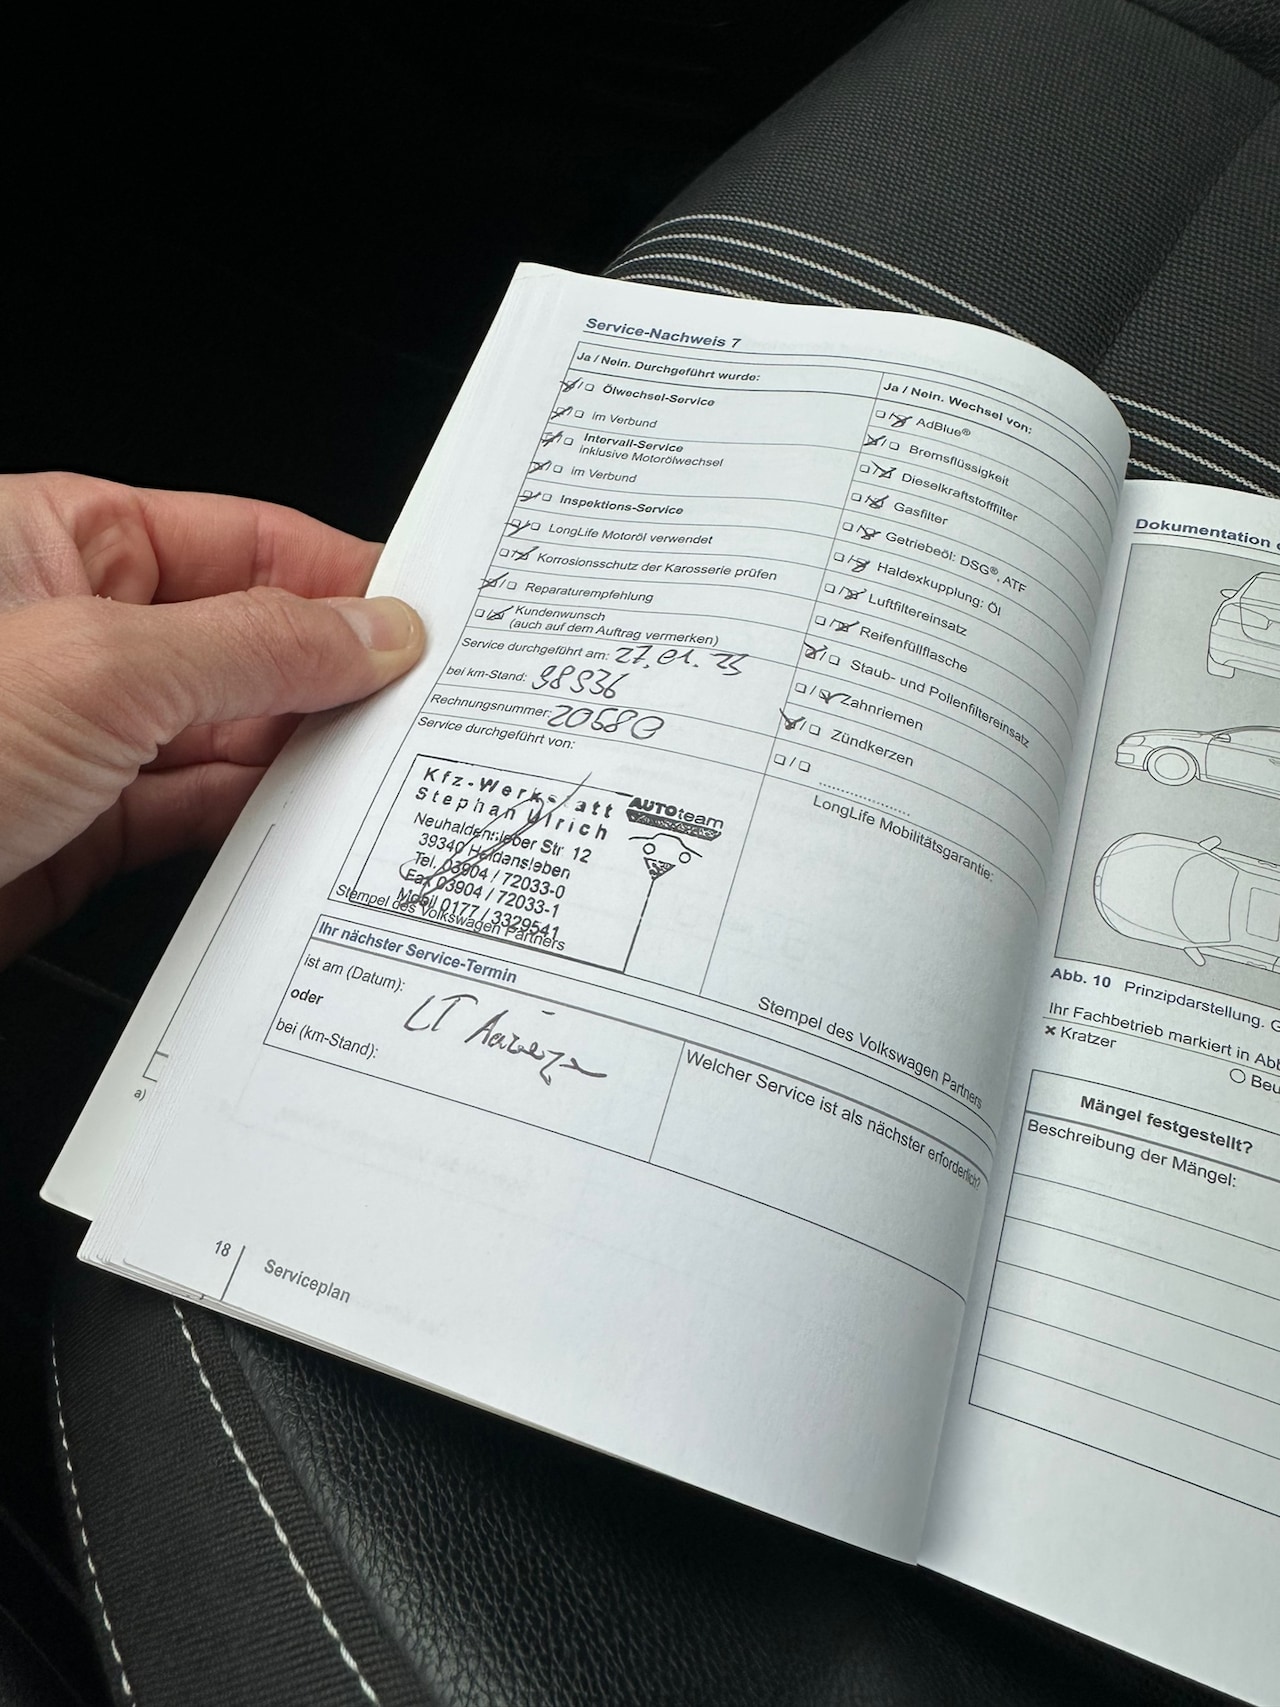 Service-Nachweis 7
Ja / Nein. Durchgeführt wurde:
Ölwechsel-Service
im Verbund
Intervall-Service
inklusive Motorölwechsel
im Verbund
Inspektions-Service
LongLife Motoröl verwendet
Korrosionsschutz der Karosserie prüfen
Reparaturempfehlung
Kundenwunsch
(auch auf dem Auftrag vermerken)
Service durchgeführt am: 27.01.23
bei km-Stand: 98936
Rechnungsnummer: 20580
Service durchgeführt von:
Kfz-Werkstatt
Stephan Ulrich
Neuhaldensleber Str. 12
39340 Haldensleben
Tel. 03904 / 72033-0
Fax 03904 / 72033-1
Mobil 0177 / 3329541
AUTOteam
Stempel des Volkswagen Partners
Ja / Nein. Wechsel von:
AdBlue®
Bremsflüssigkeit
Dieselkraftstofffilter
Gasfilter
Getriebeöl: DSG®, ATF
Haldexkupplung: Öl
Luftfiltereinsatz
Reifenfüllflasche
Staub- und Pollenfiltereinsatz
Zahnriemen
Zündkerzen
LongLife Mobilitätsgarantie:
Stempel des Volkswagen Partners
Ihr nächster Service-Termin
ist am (Datum):
oder
bei (km-Stand):
LT Anzeige
Welcher Service ist als nächster erforderlich?
18
Serviceplan
a)
Dokumentation
Abb. 10 Prinzipdarstellung. G
Ihr Fachbetrieb markiert in Abb
× Kratzer
○ Beu
Mängel festgestellt?
Beschreibung der Mängel: